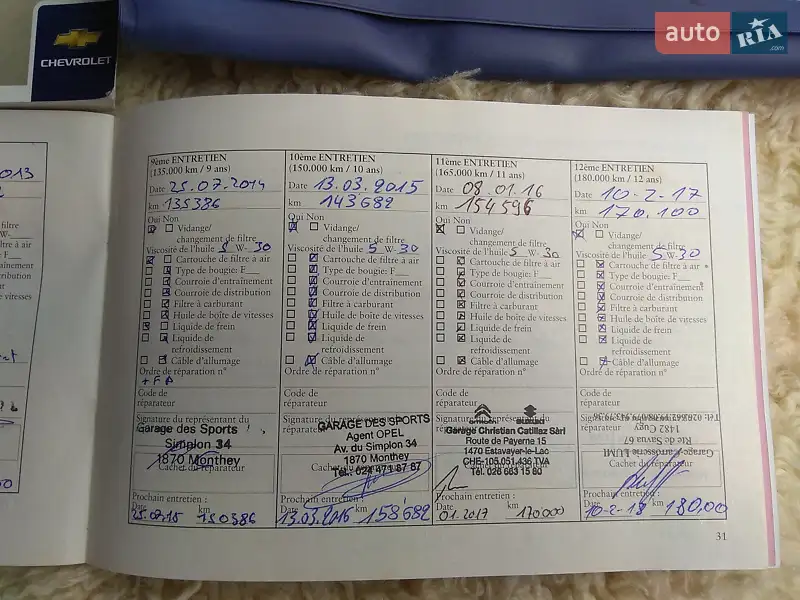 CHEVROLET
auto RIA .com
2013
9ème ENTRETIEN
(135.000 km / 9 ans)
Date 25.07.2014
km 135386
Oui Non
Vidange/
changement de filtre
Viscosité de l'huile 5 W- 30
Cartouche de filtre à air
Type de bougie: F__
Courroie d'entraînement
Courroie de distribution
Filtre à carburant
Huile de boîte de vitesses
Liquide de frein
Liquide de
refroidissement
Câble d'allumage
Ordre de réparation n°
+ F P
Code de
réparateur
Signature du représentant du
Garage des Sports
Simplon 34
1870 Monthey
Cachet du réparateur
Prochain entretien :
Date km
25.07.15 150386
10ème ENTRETIEN
(150.000 km / 10 ans)
Date 13.03.2015
km 143682
Oui Non
Vidange/
changement de filtre
Viscosité de l'huile 5 W- 30
Cartouche de filtre à air
Type de bougie: F__
Courroie d'entraînement
Courroie de distribution
Filtre à carburant
Huile de boîte de vitesses
Liquide de frein
Liquide de
refroidissement
Câble d'allumage
Ordre de réparation n°
Code de
réparateur
GARAGE DES SPORTS
Agent OPEL
Av. du Simplon 34
1870 Monthey
Tél.: 024 471 87 87
Prochain entretien :
Date km
13.03.2016 158682
11ème ENTRETIEN
(165.000 km / 11 ans)
Date 08.01.16
km 154596
Oui Non
Vidange/
changement de filtre
Viscosité de l'huile 5 W- 30
Cartouche de filtre à air
Type de bougie: F__
Courroie d'entraînement
Courroie de distribution
Filtre à carburant
Huile de boîte de vitesses
Liquide de frein
Liquide de
refroidissement
Câble d'allumage
Ordre de réparation n°
Code de
réparateur
SUZUKI
Garage Christian Catillaz Sàrl
Route de Payerne 15
1470 Estavayer-le-Lac
CHE-105.051.436 TVA
Tél. 026 663 15 80
Prochain entretien :
Date km
01.2017 170000
12ème ENTRETIEN
(180.000 km / 12 ans)
Date 10-2-17
km 170.100
Oui Non
Vidange/
changement de filtre
Viscosité de l'huile 5 W-30
Cartouche de filtre à air
Type de bougie: F__
Courroie d'entraînement
Courroie de distribution
Filtre à carburant
Huile de boîte de vitesses
Liquide de frein
Liquide de
refroidissement
Câble d'allumage
Ordre de réparation n°
Code de
réparateur
Garage-Carrosserie LUMI
Rte de Sansa 67
1482 Cugy
Cachet du réparateur
Prochain entretien :
Date km
10-2-18 180.00
31